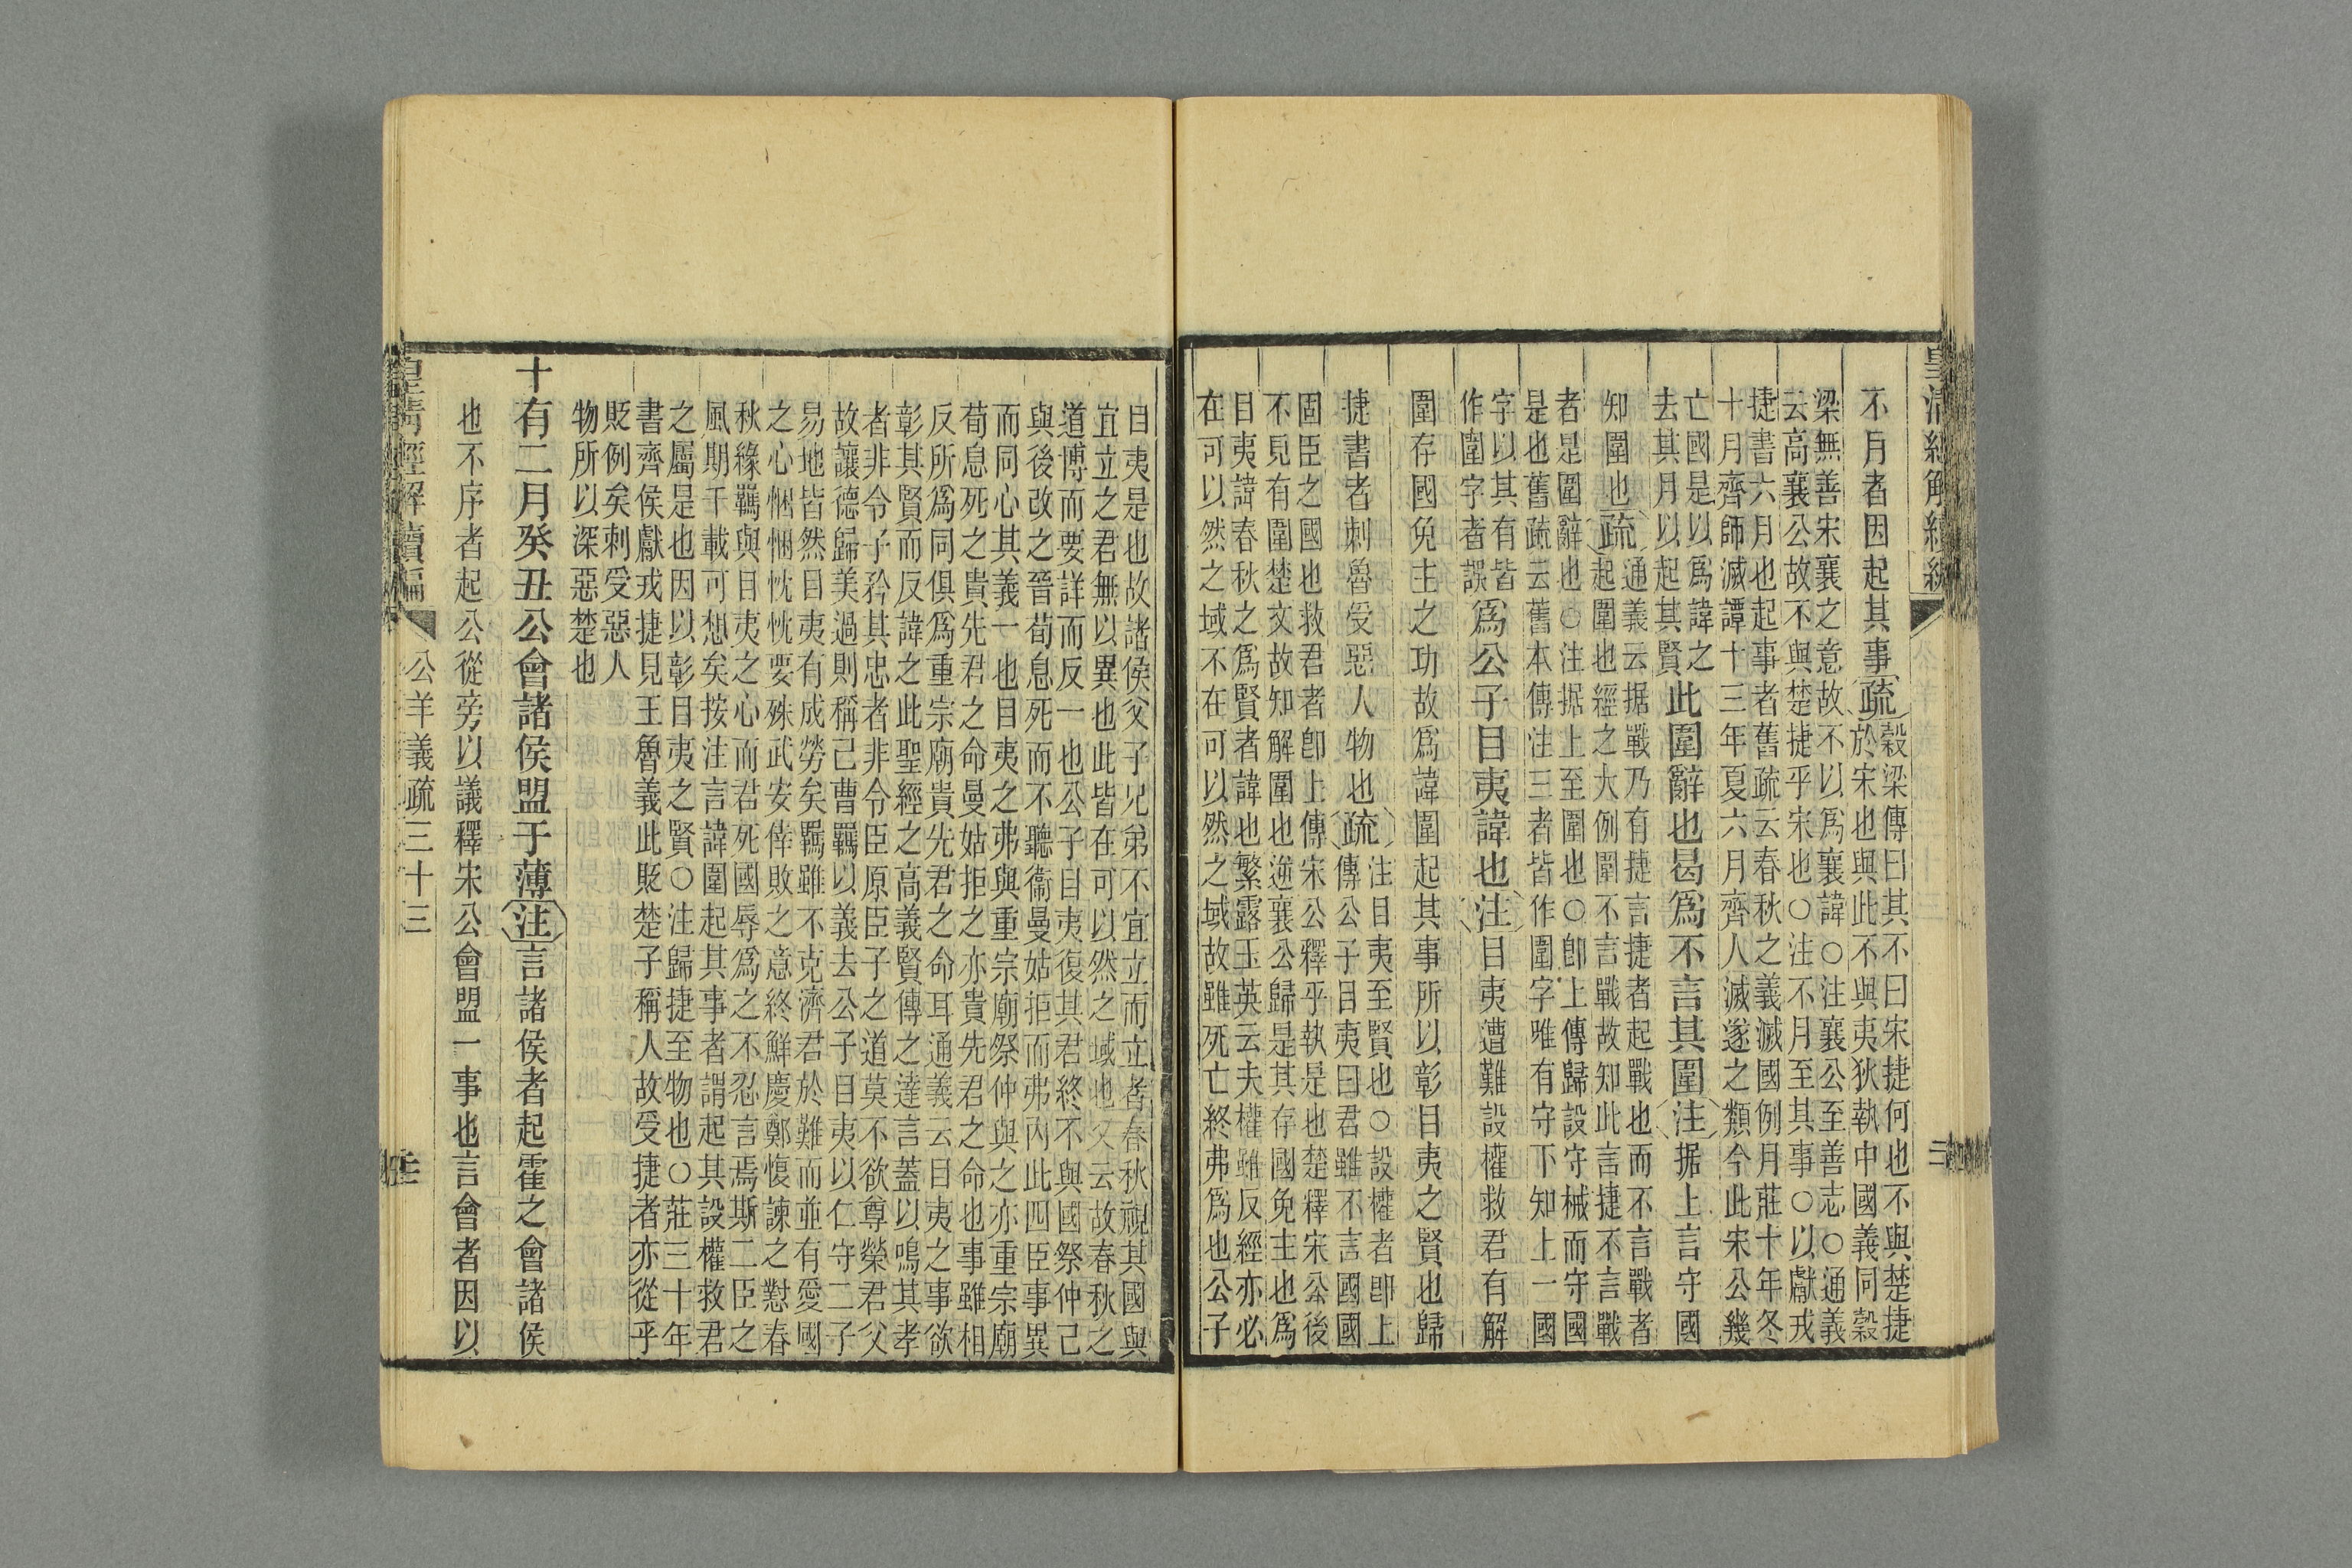 皇清經解續編
不月者因起其事疏穀梁傳曰其不曰宋捷何也不與楚捷
於宋也與此不與夷狄執中國義同穀
梁無善宋襄之意故不以爲襄諱〇注襄公至善志〇通義
云高襄公故不與楚捷乎宋也〇注不月至其事〇以獻戎
捷書六月也起事者舊疏云春秋之義滅國例月莊十年冬
十月齊師滅譚十三年夏六月齊人滅遂之類今此宋公幾
亡國是以爲諱之
去其月以起其賢此圍辭也曷爲不言其圍注据上言守國
知圍也疏通義云据戰乃有捷言捷者起戰也而不言戰者
起圍也經之大例圍不言戰故知此言捷不言戰
者是圍辭也〇注据上至圍也〇卽上傳歸設守械而守國
是也舊疏云舊本傳注三者皆作圍字唯有守下知上一國
字以其有皆
作圍字者誤爲公子目夷諱也注目夷遭難設權救君有解
圍存國免主之功故爲諱圍起其事所以彰目夷之賢也歸
捷書者刺魯受惡人物也疏注目夷至賢也〇設權者卽上
傳公子目夷曰君雖不言國國
固臣之國也救君者卽上傳宋公釋乎執是也楚釋宋公後
不見有圍楚文故知解圍也迎襄公歸是其存國免主也爲
目夷諱春秋之爲賢者諱也繁露玉英云夫權雖反經亦必
在可以然之域不在可以然之域故雖死亡終弗爲也公子
目夷是也故諸侯父子兄弟不宜立而立者春秋視其國與
宜立之君無以異也此皆在可以然之域也又云故春秋之
道博而要詳而反一也公子目夷復其君終不與國祭仲己
與後改之晉荀息死而不聽衞曼姑拒而弗內此四臣事異
而同心其義一也目夷之弗與重宗廟祭仲與之亦重宗廟
荀息死之貴先君之命曼姑拒之亦貴先君之命也事雖相
反所爲同俱爲重宗廟貴先君之命耳通義云目夷之事欲
彰其賢而反諱之此聖經之高義賢傳之達言蓋以鳴其孝
者非令子矜其忠者非令臣原臣子之道莫不欲尊榮君父
故讓德歸美過則稱己曹羈以義去公子目夷以仁守二子
易地皆然目夷有成勞矣羈雖不克濟君於難而並有愛國
之心悃悃忱忱要殊武安倖敗之意終鮮慶鄭愎諫之懟春
秋緣羈與目夷之心而君死國辱爲之不忍言焉斯二臣之
風期千載可想矣按注言諱圍起其事者謂起其設權救君
之屬是也因以彰目夷之賢〇注歸捷至物也〇莊三十年
書齊侯獻戎捷見王魯義此貶楚子稱人故受捷者亦從乎
貶例矣刺受惡人
物所以深惡楚也
十有二月癸丑公會諸侯盟于薄注言諸侯者起霍之會諸侯
也不序者起公從旁以議釋宋公會盟一事也言會者因以
皇淸經解續編 公羊義疏三十三